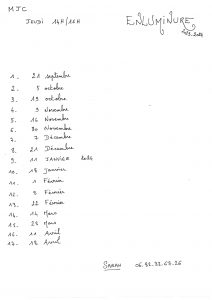 MJC
JEUDI 14H/16H
ENLUMINURE
1. 21 septembre
2. 5 octobre
3. 19 octobre
4. 9 Novembre
5. 16 Novembre
6. 30 Novembre
7. 7 Décembre
8. 21 Décembre
9. 11 JANVIER 2024
10. 18 Janvier
11. 1 Février
12. 8 Février
13. 22 Février
14. 14 Mars
15. 28 Mars
16. 11 Avril
17. 18 Avril
SARAH